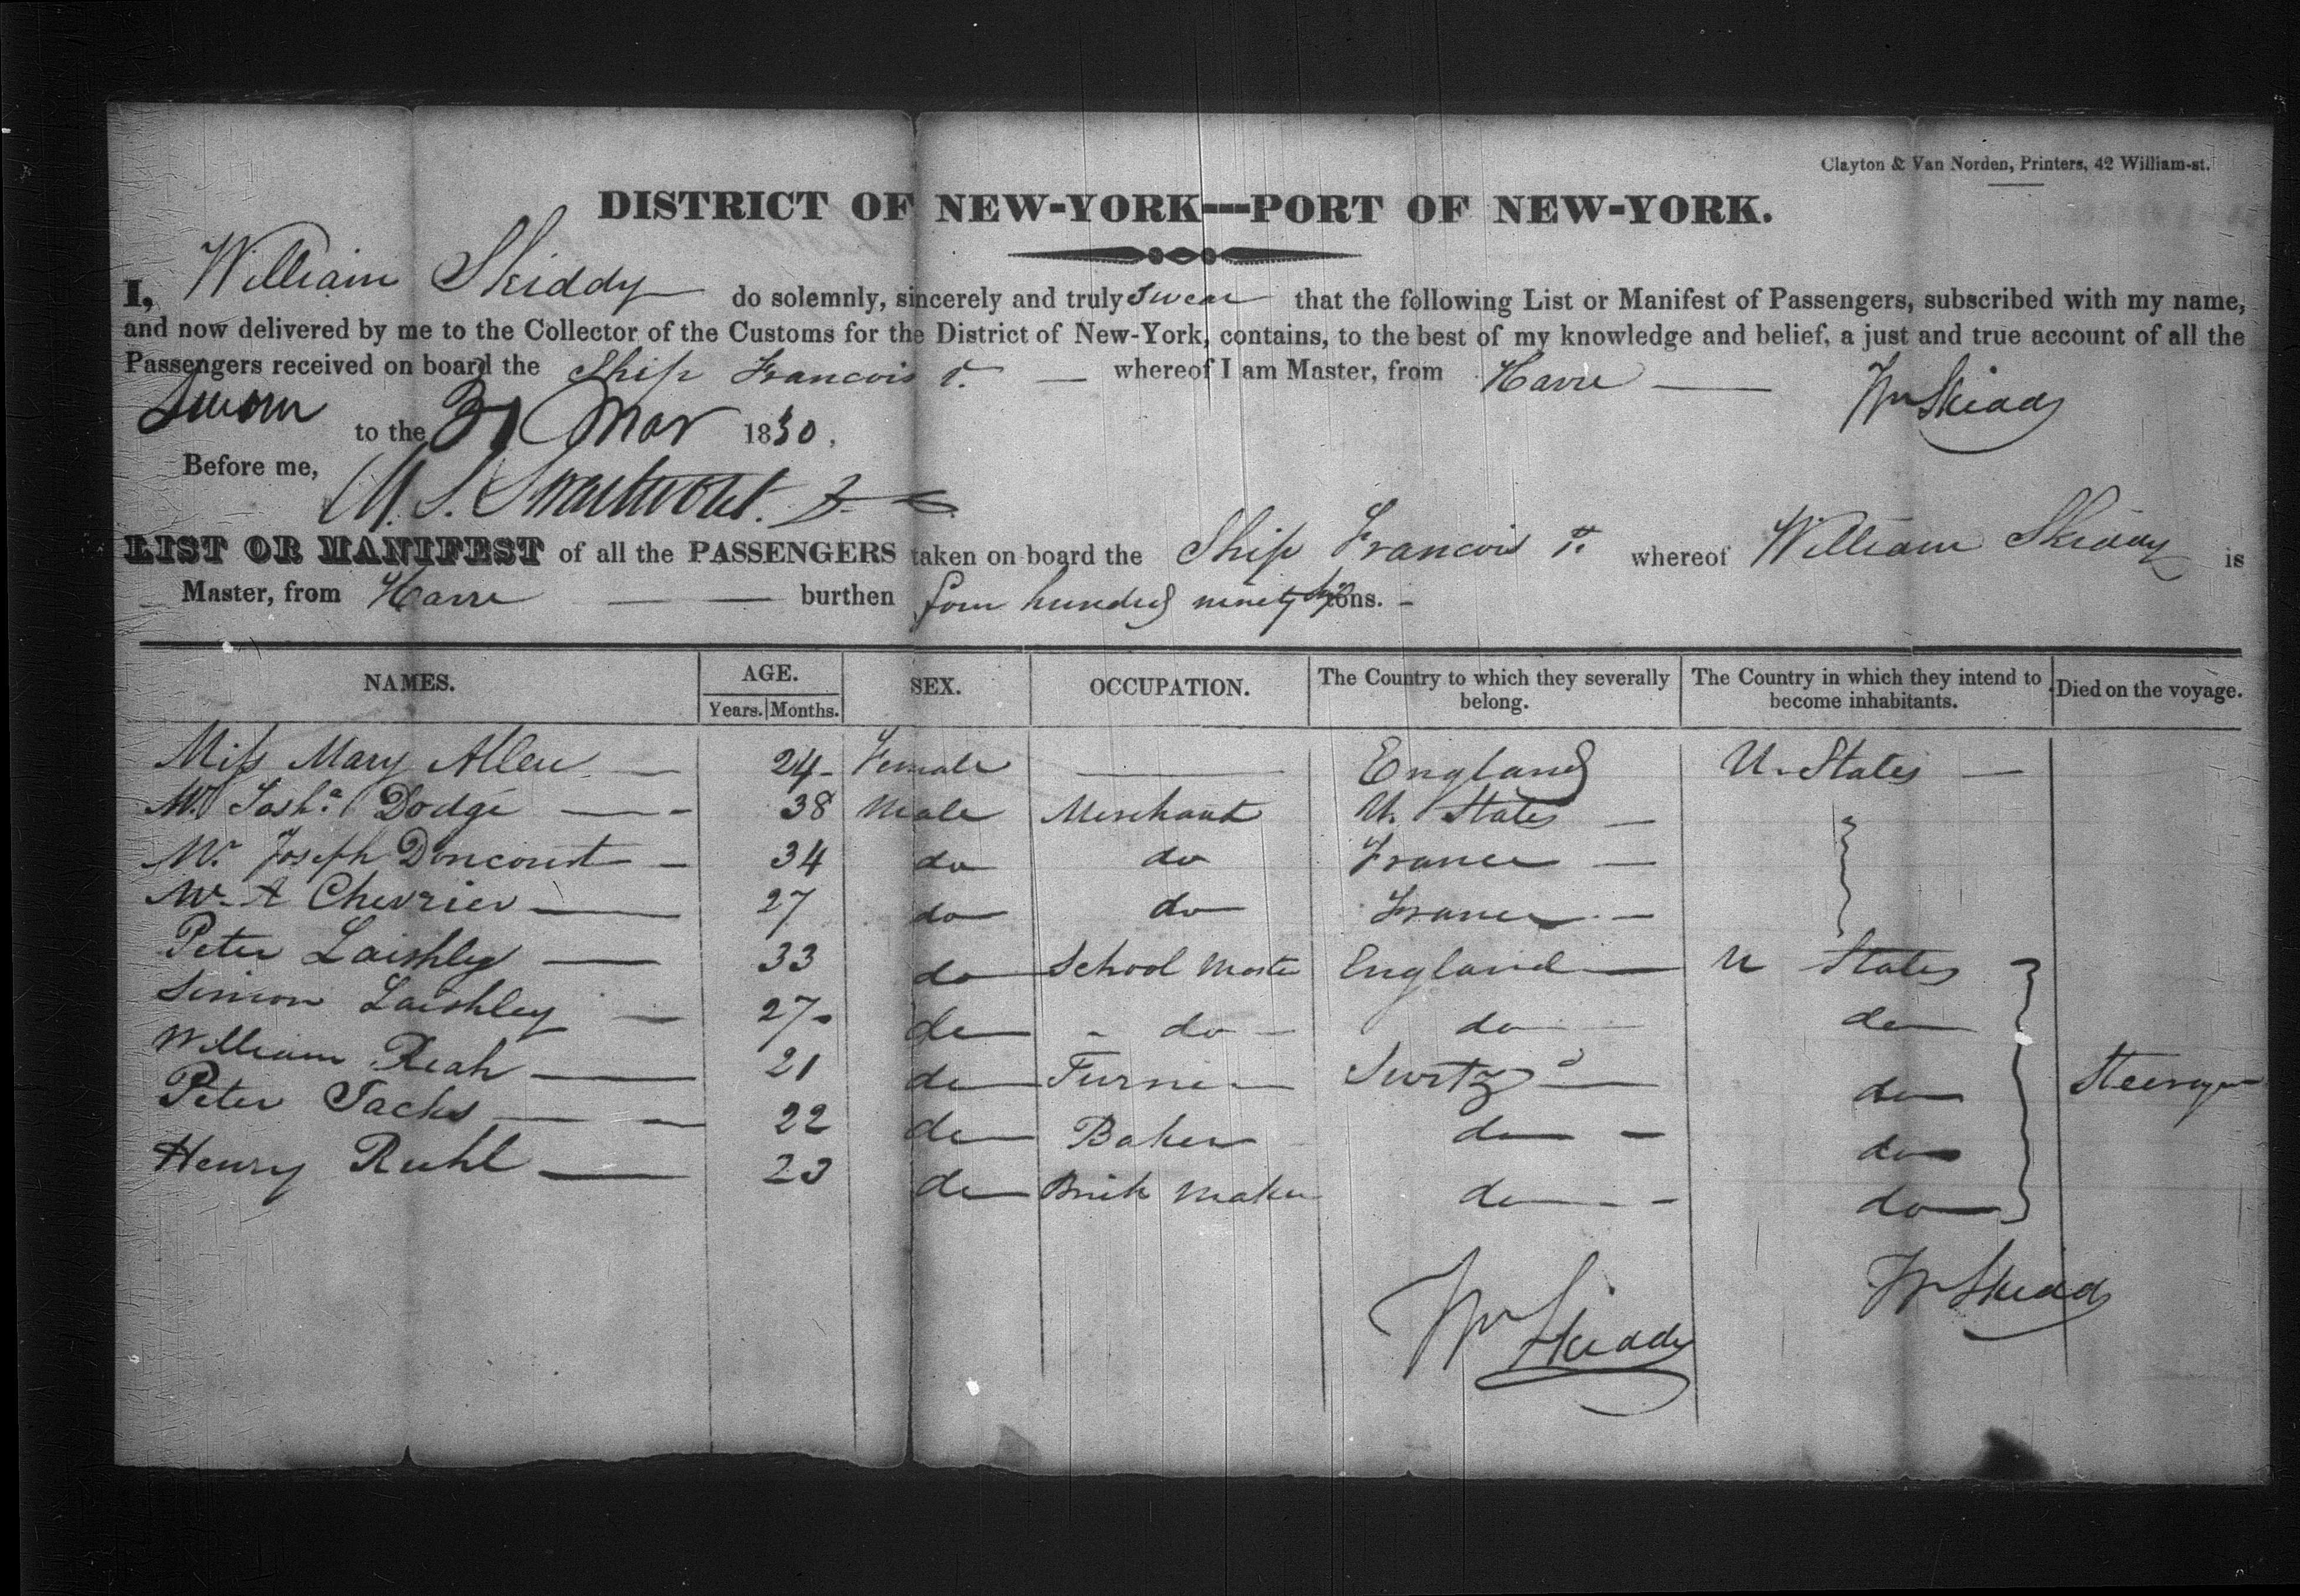 Clayton & Van Norden, Printers, 42 William-st.
DISTRICT OF NEW-YORK---PORT OF NEW-YORK.
I, William Skiddy do solemnly, sincerely and truly swear that the following List or Manifest of Passengers, subscribed with my name,
and now delivered by me to the Collector of the Customs for the District of New-York, contains, to the best of my knowledge and belief, a just and true account of all the
Passengers received on board the Ship Francois whereof I am Master, from Havre Wm Skiddy
Sworn to the 31 Mar 1830,
Before me, M. S. Swartwout.
LIST OR MANIFEST of all the PASSENGERS taken on board the Ship Francois whereof William Skiddy is
Master, from Havre burthen four hundred ninety tons.
NAMES. AGE. Years. Months. SEX. OCCUPATION. The Country to which they severally belong. The Country in which they intend to become inhabitants. Died on the voyage.
Miss Mary Allen 24 Female England U. States
Mr. Josha. Dodge 38 Male Merchant U. States
Mr. Joseph Doncourt 34 do do France
Mr. A Chevrier 27 do do France
Peter Laishley 33 do School Master England U States
Simion Laishley 27 do do do do
William Reah 21 do Turner Switzd do Steerage
Peter Sachs 22 do Baker do do
Henry Ruhl 23 do Brick Maker do do
Wm Skiddy
Wm Skiddy